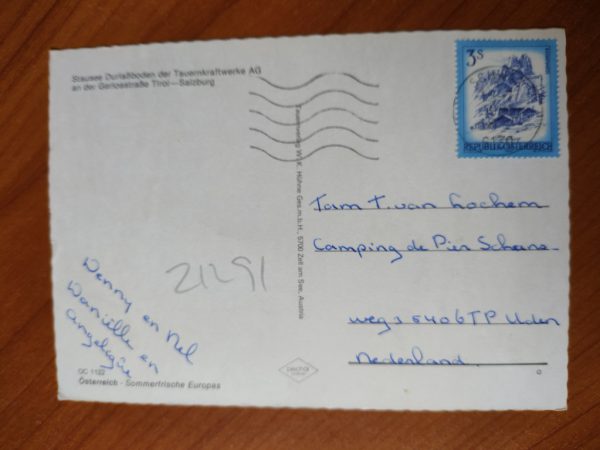 Stausee Durlaßboden der Tauernkraftwerke AG
an der Gerlosstraße Tirol—Salzburg
3S
REPUBLIK ÖSTERREICH
Tauernverlag W. K. Hühne Ges.m.b.H., 5700 Zell am See, Austria
Fam T. van Lochem
Camping de Pier
weg 3 5406TP Uden
Nederland.
21291
Wenny en Nel
Danielle en
angelique
GC 1122
Österreich - Sommerfrische Europas